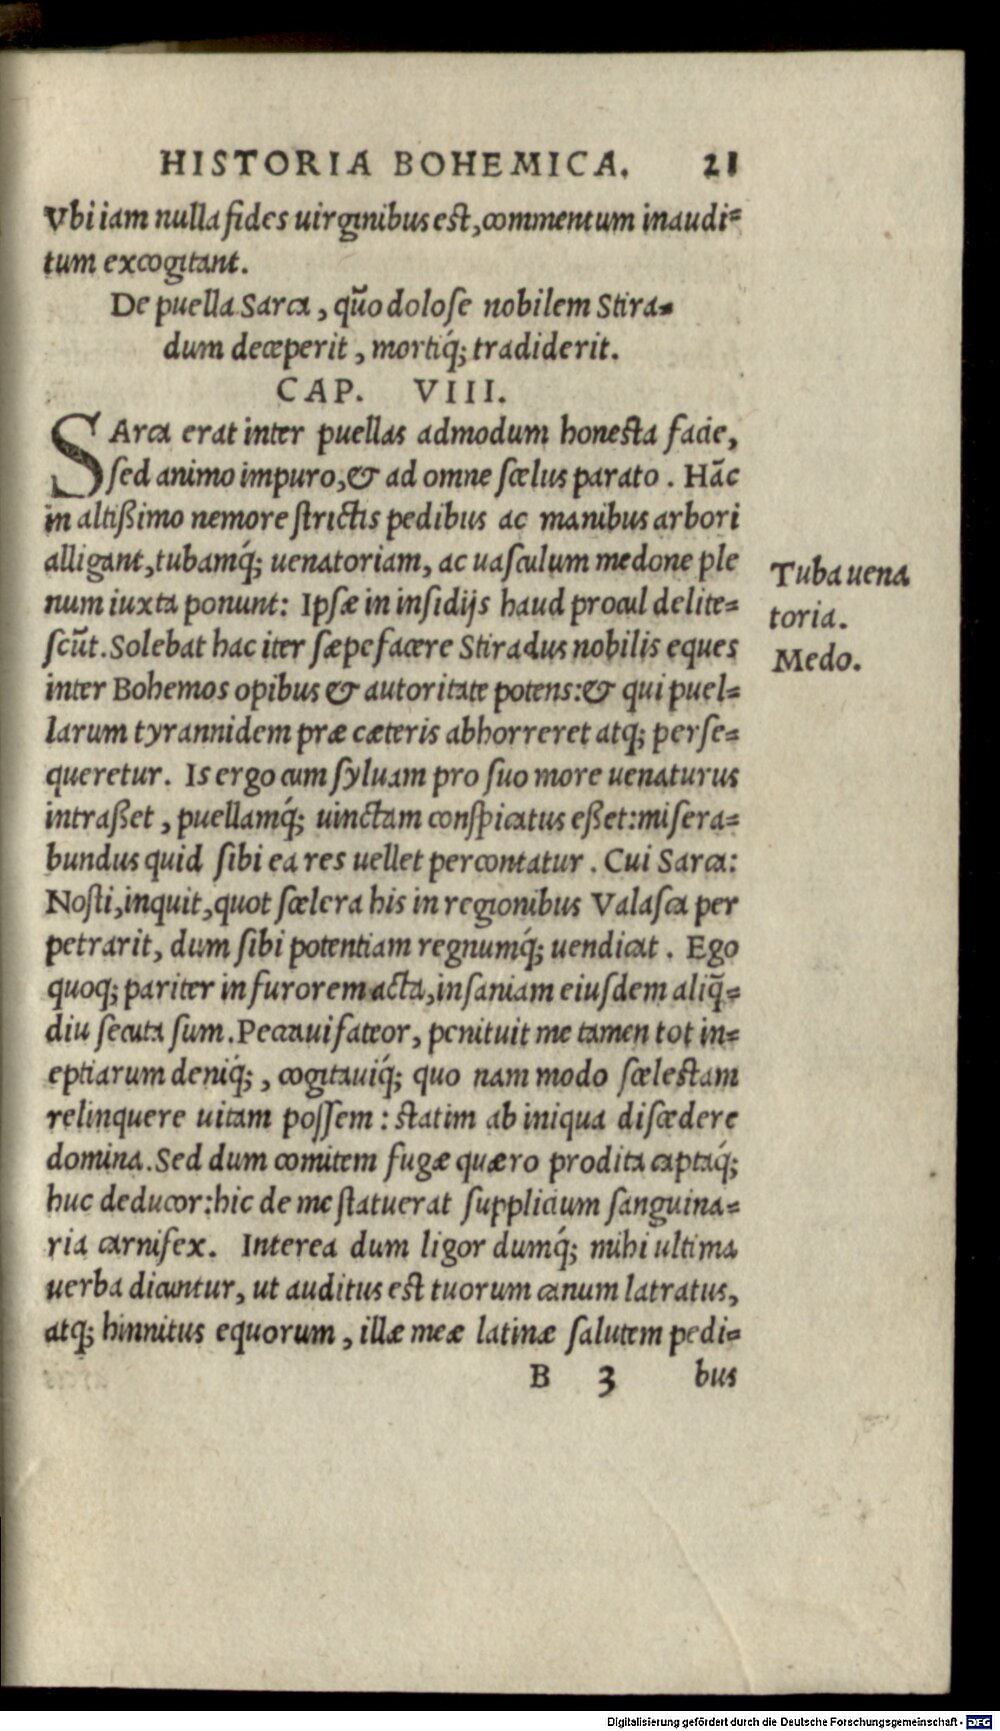 HISTORIA BOHEMICA. 21
Vbi iam nulla fides uirginibus est, commentum inaudi=
tum excogitant.
De puella Sarca, quõ dolose nobilem Stira=
dum deceperit, mortiq́; tradiderit.
CAP. VIII.
SArca erat inter puellas admodum honesta facie,
sed animo impuro, & ad omne scelus parato. Hãc
in altißimo nemore strictis pedibus ac manibus arbori
alligant, tubamq́; uenatoriam, ac uasculum medone ple
num iuxta ponunt: Ipsæ in insidijs haud procul delite=
scũt. Solebat hac iter sæpe facere Stiradus nobilis eques
inter Bohemos opibus & autoritate potens: & qui puel=
larum tyrannidem præ cæteris abhorreret atq; perse=
queretur. Is ergo cum syluam pro suo more uenaturus
intraßet, puellamq́; uinctam conspicatus eßet: misera=
bundus quid sibi ea res uellet percontatur. Cui Sarca:
Nosti, inquit, quot scelera his in regionibus Valasca per
petrarit, dum sibi potentiam regnumq́; uendicat. Ego
quoq; pariter in furorem acta, insaniam eiusdem aliq̃=
diu secuta sum. Peccaui fateor, penituit me tamen tot in=
eptiarum deniq́;, cogitauiq́; quo nam modo scelestam
relinquere uitam possem: statim ab iniqua discedere
domina. Sed dum comitem fugæ quæro prodita captaq́;
huc deducor: hic de me statuerat supplicium sanguina=
ria carnifex. Interea dum ligor dumq́; mihi ultima
uerba dicuntur, ut auditus est tuorum canum latratus,
atq; hinnitus equorum, illæ meæ latinæ salutem pedi=
B 3 bus
Tuba uena
toria.
Medo.
Digitalisierung gefördert durch die Deutsche Forschungsgemeinschaft - DFG